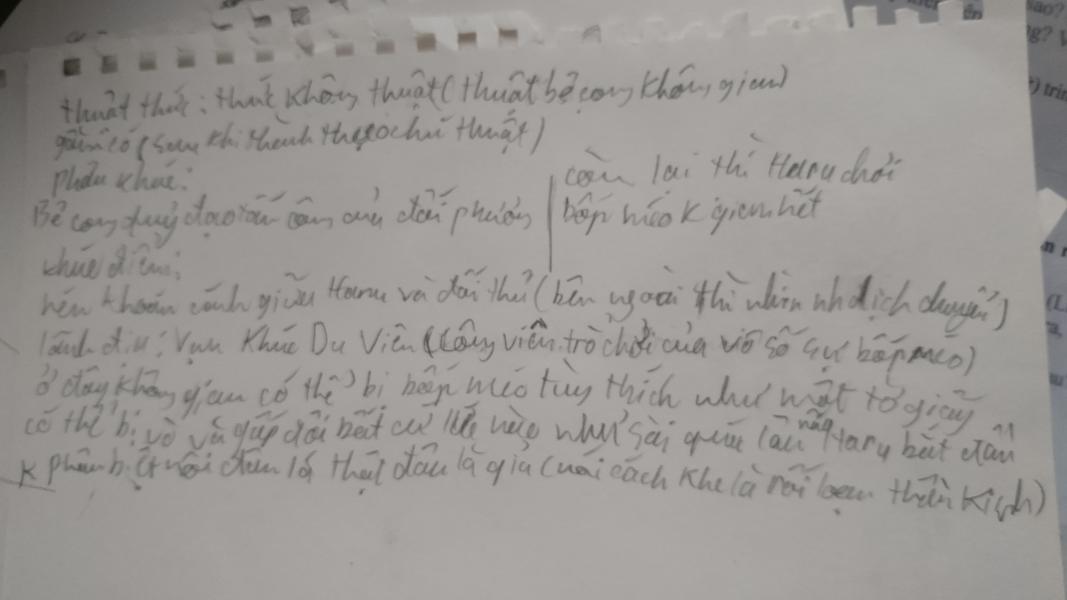 thuật thức: thuk không thuật (thuật bẻ cong không gian)
gồm có (sau khi thành thạo chú thuật)
phản khúc:
Bẻ cong quỹ đạo tấn công của đối phương
còn lại thì Haru chơi
bóp méo k gian hết
khúc điểm:
nén khoản cách giữa Haru và đối thủ (bên ngoài thì nhìn nh dịch chuyển)
lãnh địa: Vạn Khúc Du Viên (công viên trò chơi của vô số sự bóp méo)
ở đây không gian có thể bị bóp méo tùy thích như một tờ giấy
có thể bị vò và gấp đôi bất cứ lúc nào như sài quá lâu não Haru bắt đầu
k phân biệt nổi đâu là thật đâu là giả (nói cách khc là rối loạn thần kinh)